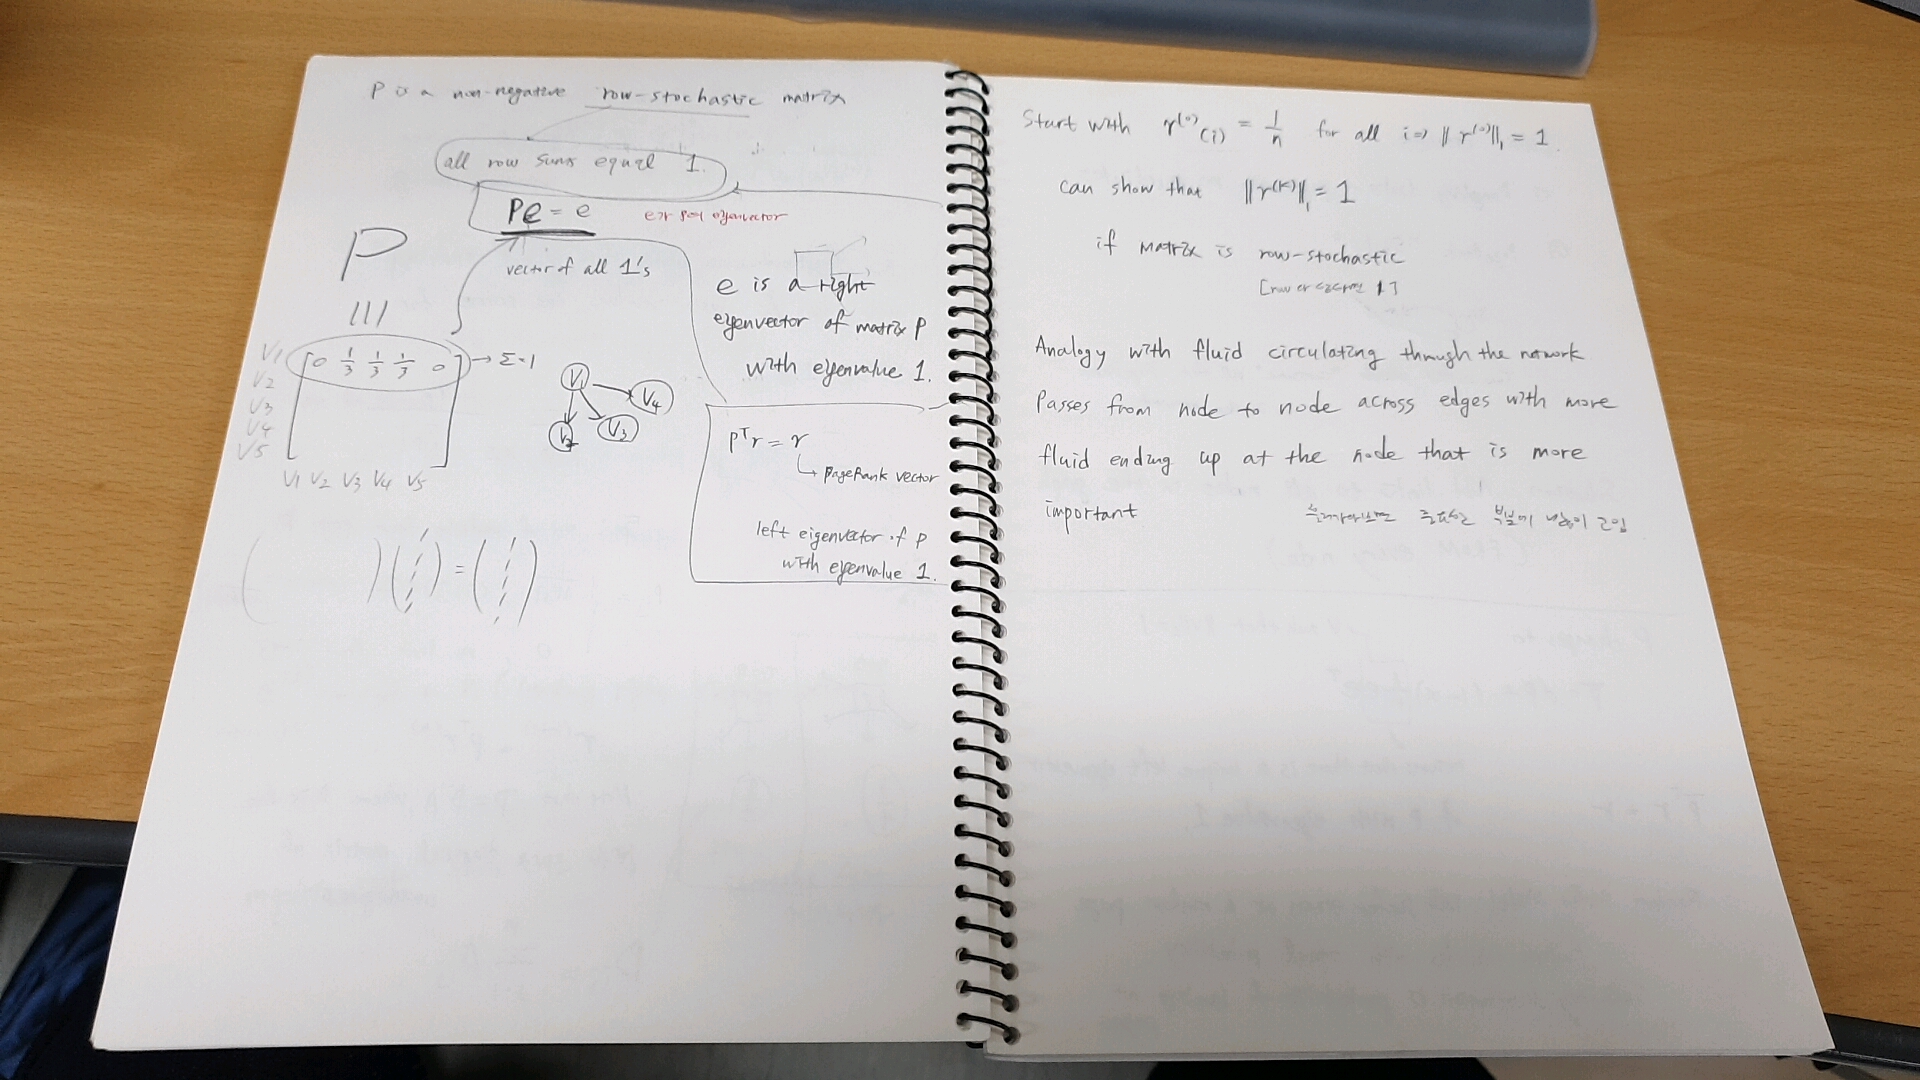 P is a non-negative row-stochastic matrix
all row sums equal 1.
Pe = e
eigenvector
vector of all 1's
P
V1 [0 1/3 1/3 1/3 0] → Σ=1
V2
V3
V4
V5
V1 V2 V3 V4 V5
V1
V4
V2
V3
( ) ( ) = ( )
e is a right
eigenvector of matrix P
with eigenvalue 1.
Pᵀr = r
PageRank vector
left eigenvector of P
with eigenvalue 1.
Start with r⁽⁰⁾(i) = 1/n for all i ⇒ ‖r⁽⁰⁾‖₁ = 1.
can show that ‖r⁽ᵏ⁾‖₁ = 1
if matrix is row-stochastic
Analogy with fluid circulating through the network
Passes from node to node across edges with more
fluid ending up at the node that is more
important